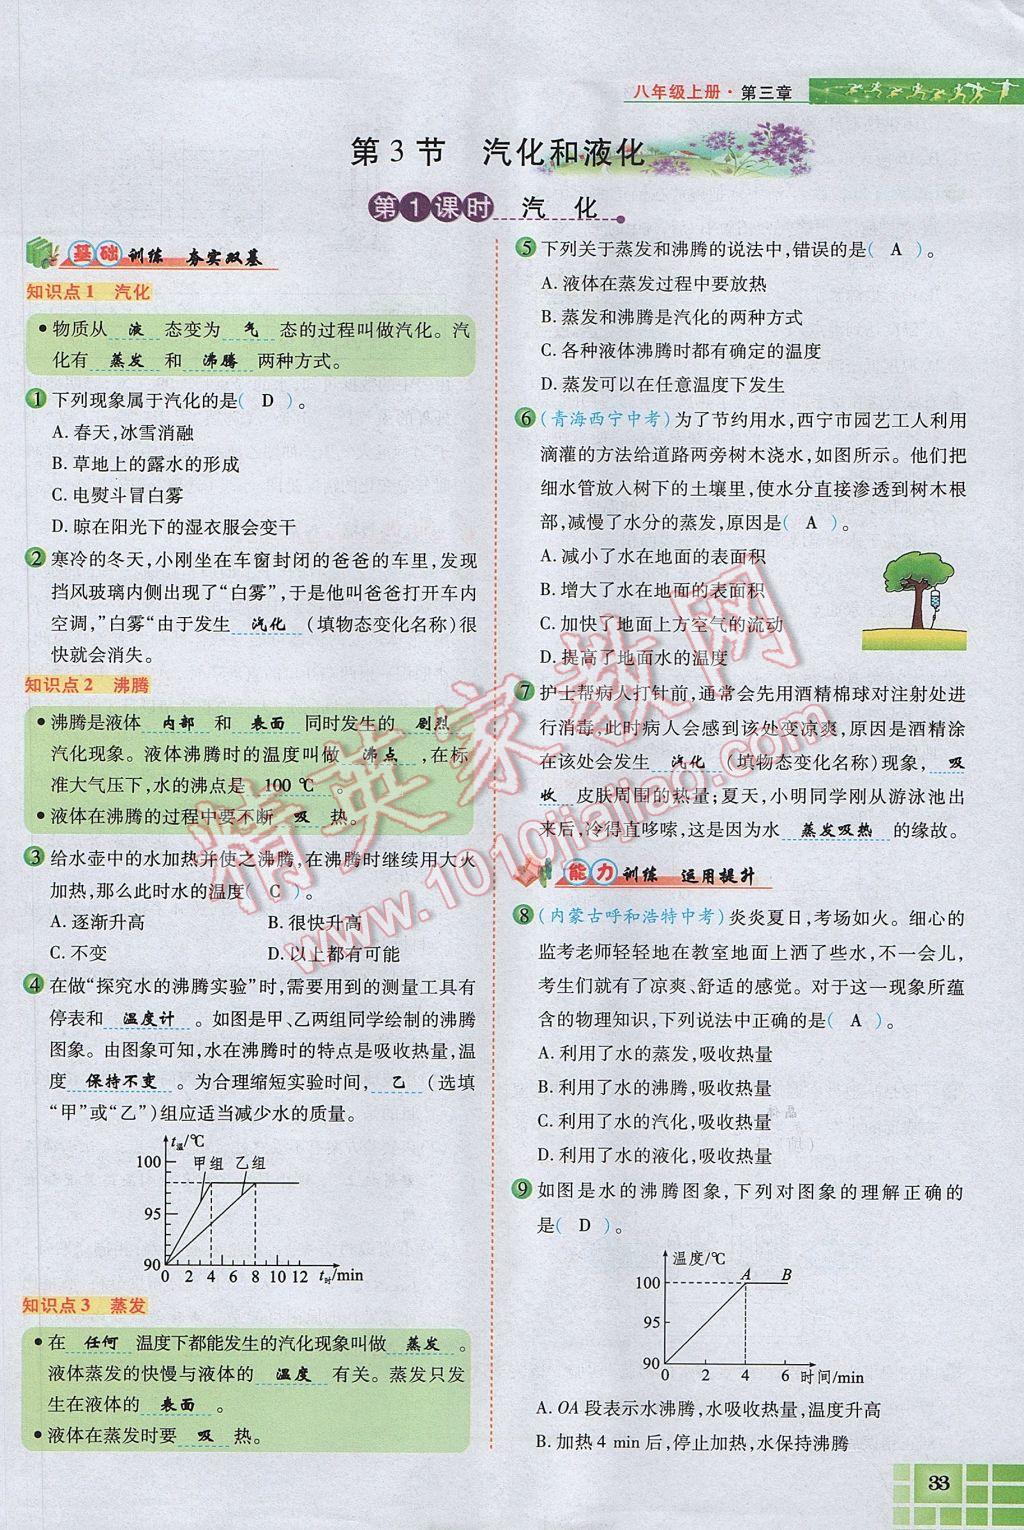 八年级上册·第三章
第3节 汽化和液化
第1课时 汽 化
基础训练 夯实双基
知识点1 汽化
●物质从 液 态变为 气 态的过程叫做汽化。汽
化有 蒸发 和 沸腾 两种方式。
1 下列现象属于汽化的是( D )。
A. 春天,冰雪消融
B. 草地上的露水的形成
C. 电熨斗冒白雾
D. 晾在阳光下的湿衣服会变干
2 寒冷的冬天,小刚坐在车窗封闭的爸爸的车里,发现
挡风玻璃内侧出现了“白雾”,于是他叫爸爸打开车内
空调,”白雾“由于发生 汽化 (填物态变化名称)很
快就会消失。
知识点2 沸腾
●沸腾是液体 内部 和 表面 同时发生的 剧烈
汽化现象。液体沸腾时的温度叫做 沸点 ,在标
准大气压下,水的沸点是 100 ℃ 。
●液体在沸腾的过程中要不断 吸 热。
3 给水壶中的水加热并使之沸腾,在沸腾时继续用大火
加热,那么此时水的温度( C )
A. 逐渐升高 B. 很快升高
C. 不变 D. 以上都有可能
4 在做“探究水的沸腾实验”时,需要用到的测量工具有
停表和 温度计 。如图是甲、乙两组同学绘制的沸腾
图象。由图象可知,水在沸腾时的特点是吸收热量,温
度 保持不变 。为合理缩短实验时间, 乙 (选填
“甲”或“乙”)组应适当减少水的质量。
t温/℃
100
甲组 乙组
95
90
0 2 4 6 8 10 12 t时/min
知识点3 蒸发
●在 任何 温度下都能发生的汽化现象叫做 蒸发 。
液体蒸发的快慢与液体的 温度 有关。蒸发只发
生在液体的 表面 。
●液体在蒸发时要 吸 热。
5 下列关于蒸发和沸腾的说法中,错误的是( A )。
A. 液体在蒸发过程中要放热
B. 蒸发和沸腾是汽化的两种方式
C. 各种液体沸腾时都有确定的温度
D. 蒸发可以在任意温度下发生
6 (青海西宁中考)为了节约用水,西宁市园艺工人利用
滴灌的方法给道路两旁树木浇水,如图所示。他们把
细水管放入树下的土壤里,使水分直接渗透到树木根
部,减慢了水分的蒸发,原因是( A )。
A. 减小了水在地面的表面积
B. 增大了水在地面的表面积
C. 加快了地面上方空气的流动
D. 提高了地面水的温度
7 护士帮病人打针前,通常会先用酒精棉球对注射处进
行消毒,此时病人会感到该处变凉爽,原因是酒精涂
在该处会发生 汽化 (填物态变化名称)现象, 吸
收 皮肤周围的热量;夏天,小明同学刚从游泳池出
来后,冷得直哆嗦,这是因为水 蒸发吸热 的缘故。
能力训练 运用提升
8 (内蒙古呼和浩特中考)炎炎夏日,考场如火。细心的
监考老师轻轻地在教室地面上洒了些水,不一会儿,
考生们就有了凉爽、舒适的感觉。对于这一现象所蕴
含的物理知识,下列说法中正确的是( A )。
A. 利用了水的蒸发,吸收热量
B. 利用了水的沸腾,吸收热量
C. 利用了水的汽化,吸收热量
D. 利用了水的液化,吸收热量
9 如图是水的沸腾图象,下列对图象的理解正确的
是( D )。
温度/℃
100 A B
90
0 2 4 6 时间/min
A. OA 段表示水沸腾,水吸收热量,温度升高
B. 加热 4 min 后,停止加热,水保持沸腾
33
精英家教网
www.1010jiajiao.com